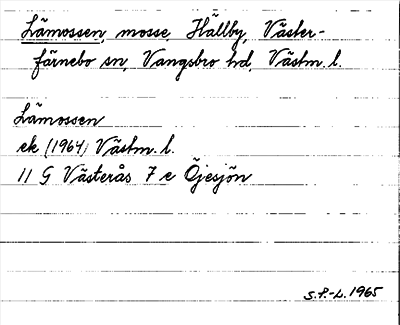 Lämossen, mosse, Hällby, Väster-
färnebo sn, Vangsbro hd, Västm. l.
Lämossen
ek (1964) Västm. l.
11 G Västerås 7 e Öjesjön
S.P.-L. 1965